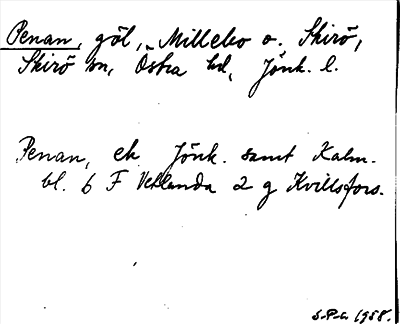 Penan, göl, Millebo o. Skirö,
Skirö sn, Östra hd, Jönk. l.
Penan, ek. Jönk. samt Kalm.
bl. 6 F Vetlanda 2 g Kvillsfors.
S.P-n 1958.